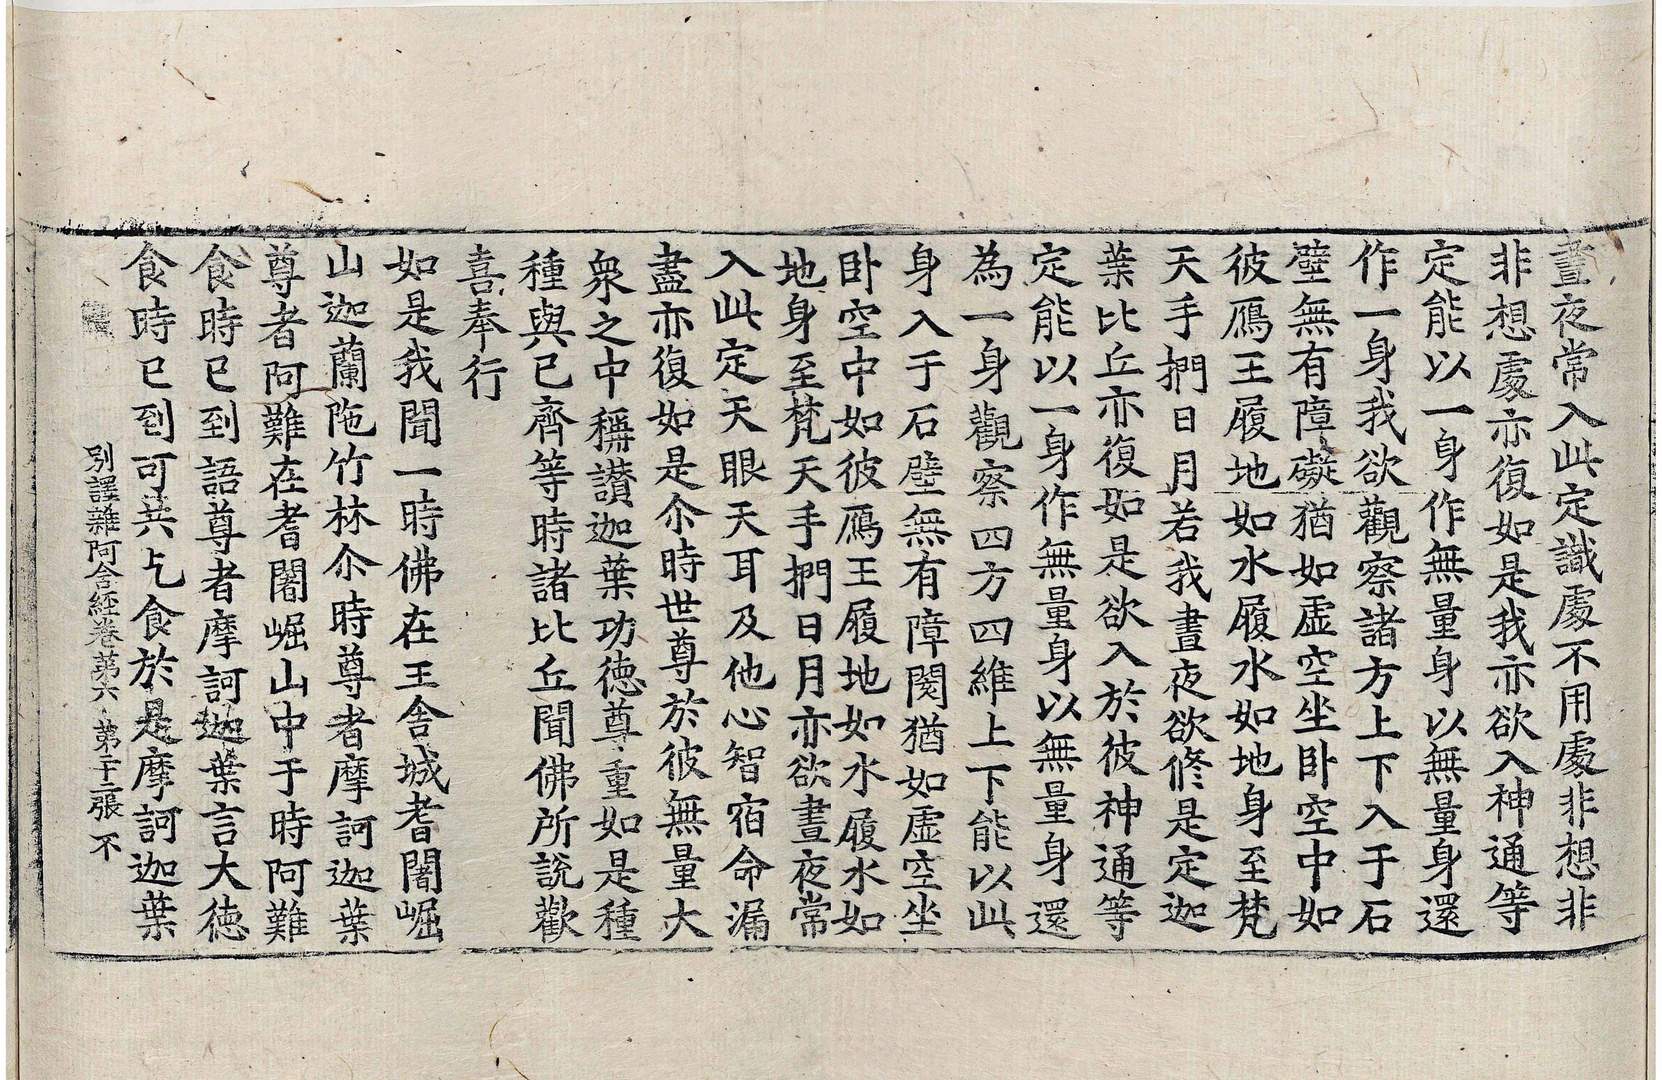 晝夜常入此定識處不用處非想非
非想處亦復如是我亦欲入神通等
定能以一身作無量身以無量身還
作一身我欲觀察諸方上下入于石
壁無有障礙猶如虛空坐卧空中如
彼鴈王履地如水履水如地身至梵
天手捫日月若我晝夜欲修是定迦
葉比丘亦復如是欲入於彼神通等
定能以一身作無量身以無量身還
為一身觀察四方四維上下能以此
身入于石壁無有障閡猶如虛空坐
卧空中如彼鴈王履地如水履水如
地身至梵天手捫日月亦欲晝夜常
入此定天眼天耳及他心智宿命漏
盡亦復如是尒時世尊於彼無量大
衆之中稱讃迦葉功德尊重如是種
種與已齊等時諸比丘聞佛所說歡
喜奉行
如是我聞一時佛在王舍城耆闍崛
山迦蘭陁竹林尒時尊者摩訶迦葉
尊者阿難在耆闍崛山中于時阿難
食時已到語尊者摩訶迦葉言大徳
食時已到可共乞食於是摩訶迦葉
別譯雜阿含経卷苐六 苐二十二張 不